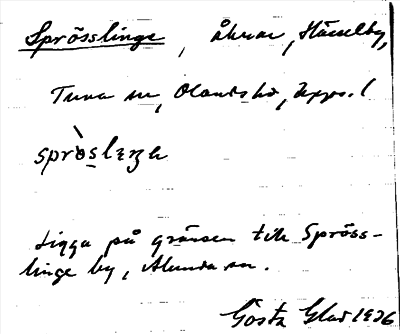 Sprösslinge, åkrar, Hässelby,
Tuna sn, Olands hd, Upps. l
spròslɛŋɛ
Ligga på gränsen till Spröss-
linge by, Alunda sn.
Gösta Glad 1926